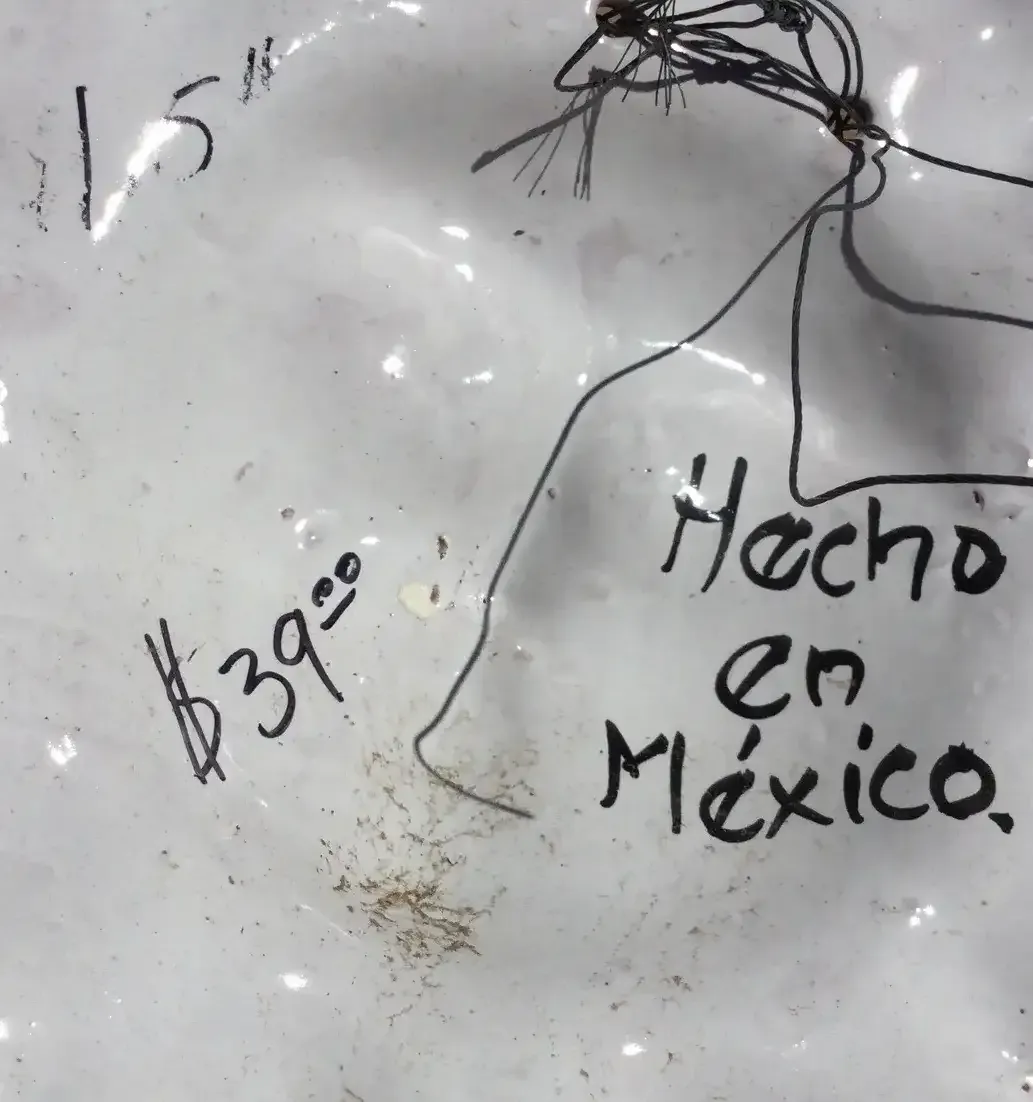 15"
$39.00
Hecho
en
México.